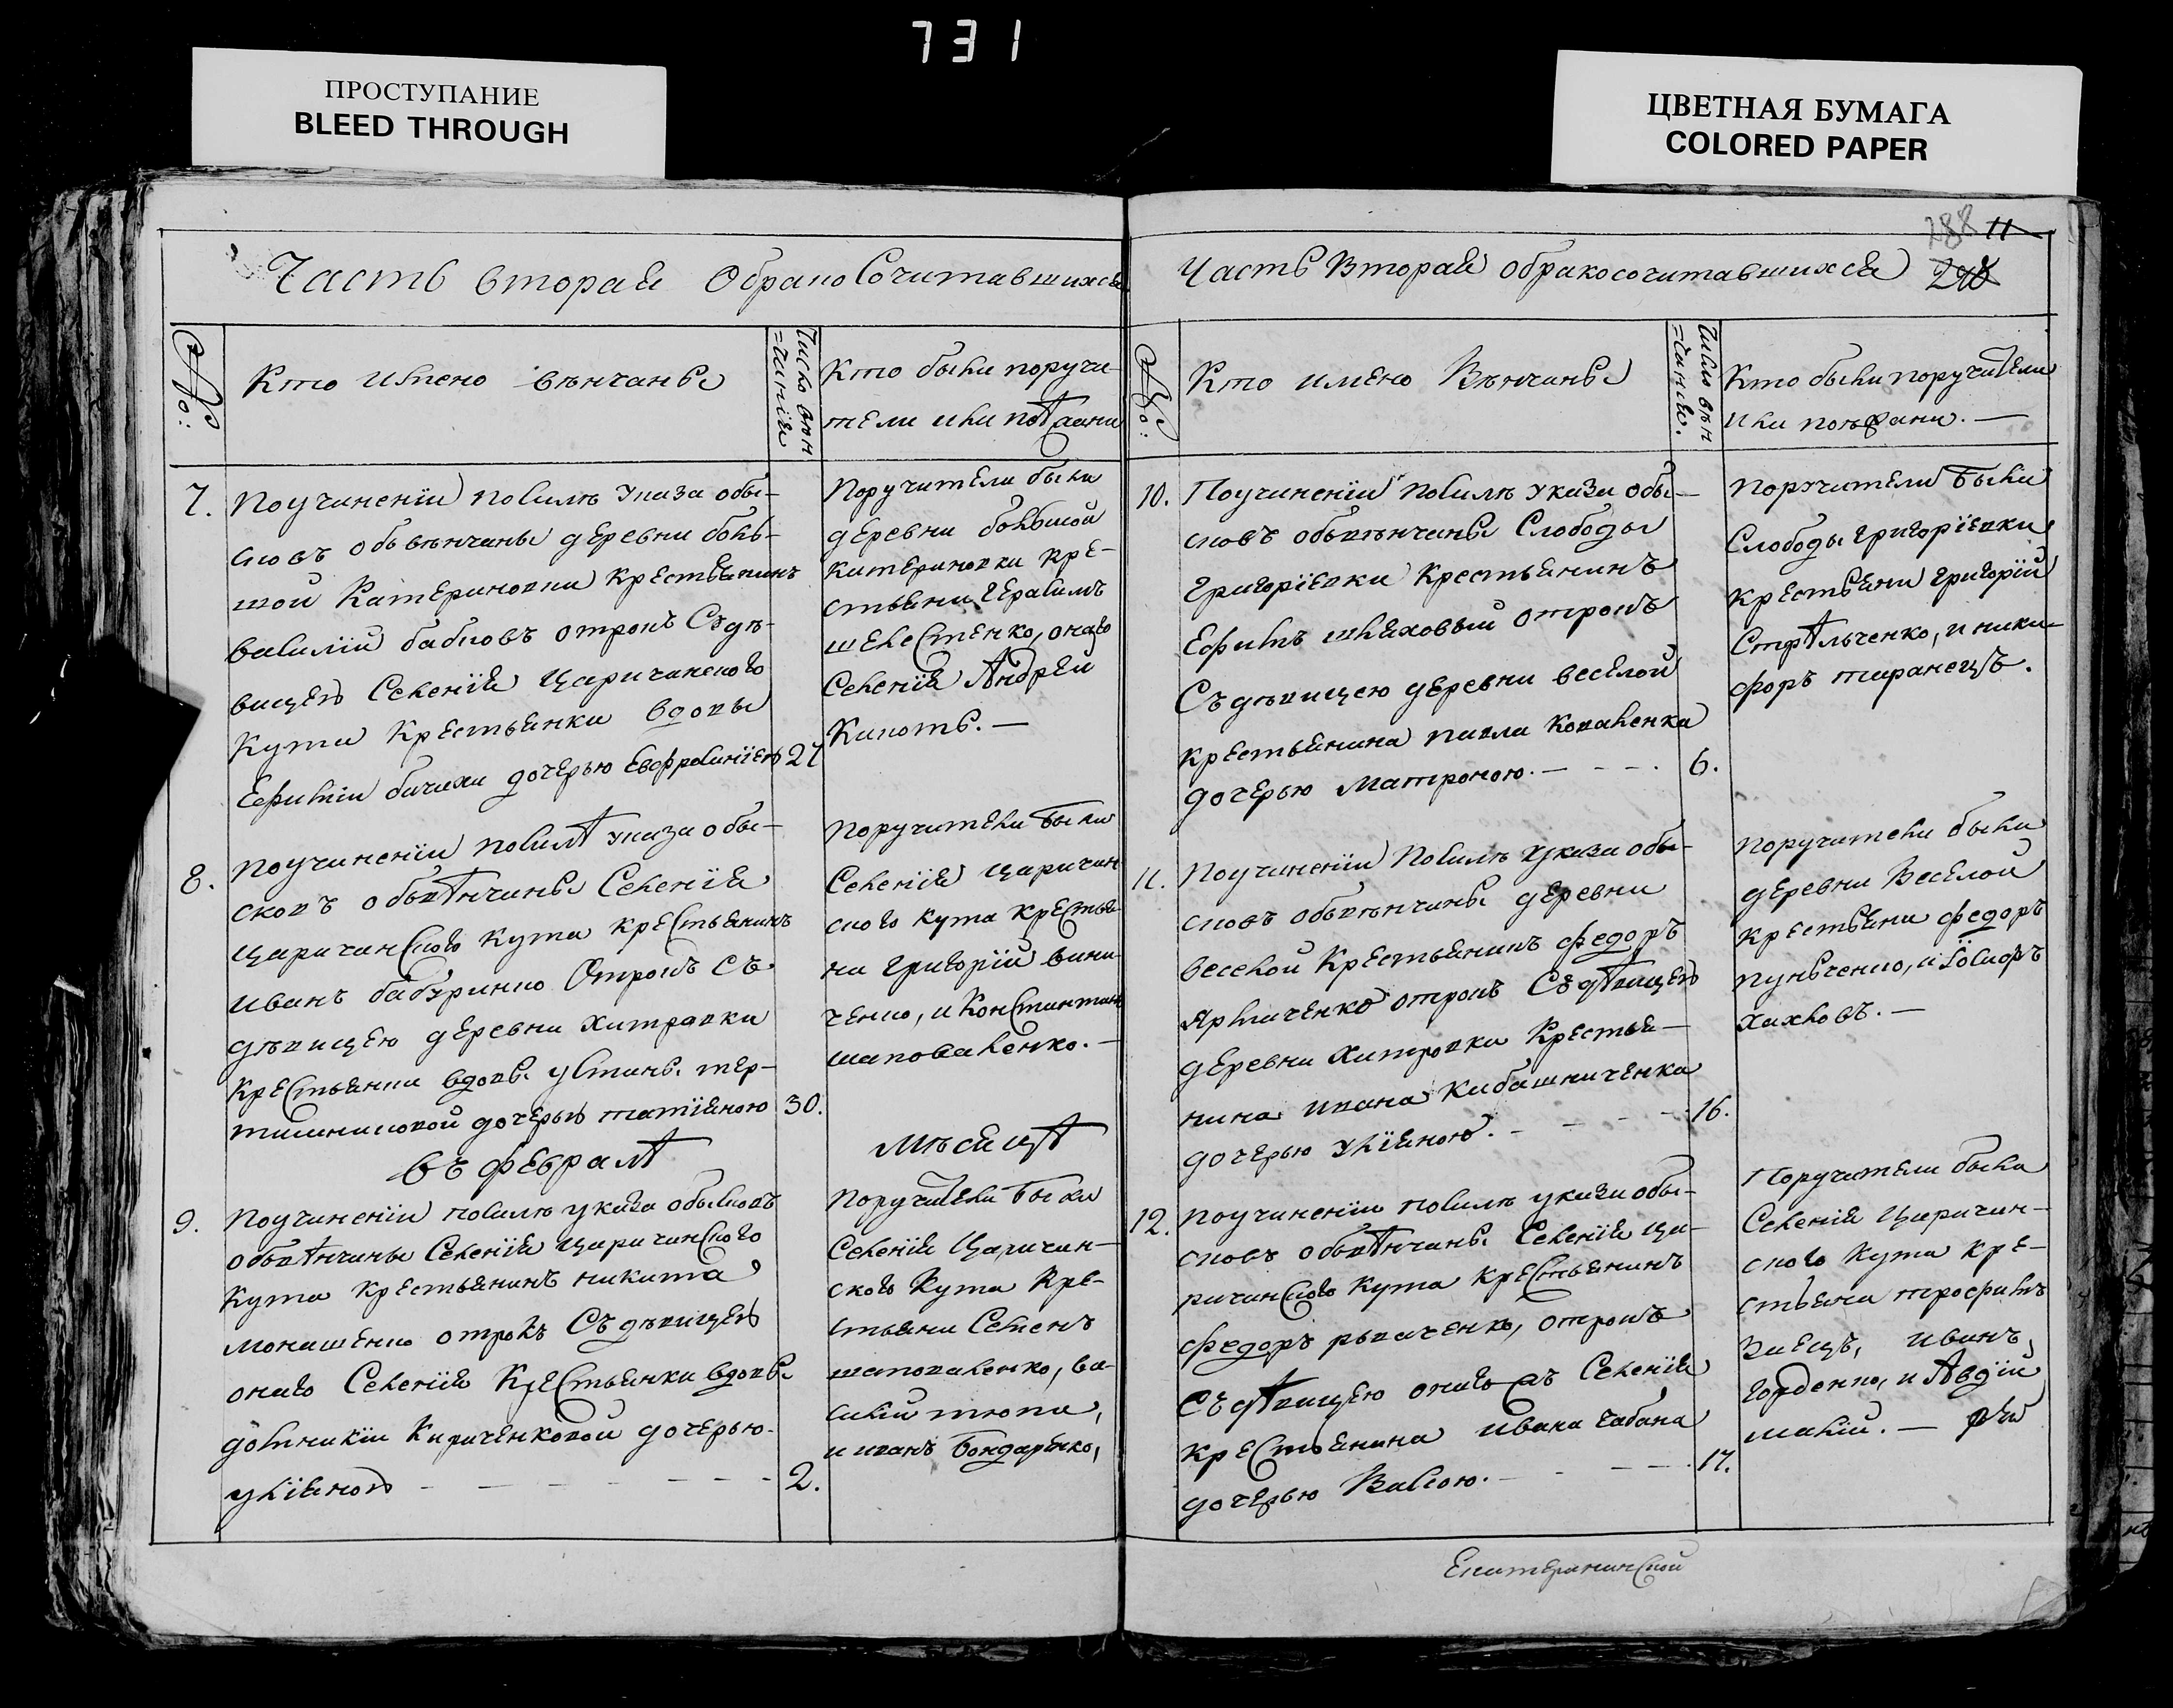 731
ПРОСТУПАНИЕ
BLEED THROUGH
ЦВЕТНАЯ БУМАГА
COLORED PAPER
Часть вторая обрако Сочитавшихся
№:
Кто имено вѣнчаны
Число вѣн
=чанія
Кто были поручи-
тели или поѣзжани
7. Поучиненіи посилѣ указа обы-
сковъ обвѣнчаны деревни боль-
шой Катериновки крестьянинъ
василій бабковъ отрокъ Съдѣ-
вицею Селенія Царичанского
Кута Крестьянки вдовы
Ефиміи бичихи дочерью Евфросиніею 27
Поручители были
деревни большой
катериновки кре-
стьяни герасимъ
шелестенко, онаго
Селенія Андрей
Кипоть. —
8. поучиненіи посилѣ указа обы-
сковъ обвѣнчаны Селенія
Царичанского кута крестьянинъ
иванъ бабуринко Отрокъ съ
дѣвицею деревни хитровки
Крестьянки вдовы устины тер-
тишниковой дочерью татіяною 30.
поручители были
Селенія царичан
ского кута крестья-
ни григорій вини-
ченко, и Константинъ
шаповаленко. —
въ февралѣ
мѣсяцѣ
9. поучиненіи посилѣ указа обысковъ
обвѣнчаны Селенія царичанского
кута крестьянинъ никита
монашенко отрокъ Съ дѣвицею
онаго Селенія Крестьянки вдовы
домникіи Кириченковой дочерью
уліяною - - - - - - 2.
поручители были
Селенія Царичан-
ского Кута Кре-
стьяни Семенъ
шаповаленко, ва-
силий тюпа,
и иванъ бондаренко,
288 11
Часть Вторая обракосочитавшихся
№:
Кто имено Вѣнчаны
Число вѣн
=чанія.
Кто были поручители
Или поѣзжани. —
10. Поучиненіи посилѣ указа обы-
сковъ обвѣнчаны Слободы
григоріевки Крестьянинъ
Ефимъ шляховый отрокъ
Съ дѣвицею деревни веселой
крестьянина павла Коваленка
дочерью Матроною. — - - - 6.
поручители были
Слободы григоріевки
крестьяни григорій
Стрѣльченко, и ники-
форъ таранецъ.
11. поучиненіи посилѣ указа обы-
сковъ обвѣнчаны деревни
веселой Крестьянинъ федоръ
Ярмиченко отрокъ Съ дѣвицею
деревни хитровки Крестья-
нина ивана Кибашниченка
дочерью уліяною. - - - - 16.
поручители были
деревни Веселой
крестьяни федоръ
пунченко, и іосифъ
хахловъ. —
12. поучиненіи посилѣ указа обы-
сковъ обвѣнчаны Селенія ца-
ричанского Кута Крестьянинъ
федоръ ткаченко, отрокъ
съ дѣвицею онаго жъ Селенія
крестьянина ивана чабана
дочерью Вассою. - - - - 17.
Поручители были
Селенія царичан-
ского Кута кре-
стьяни трофимъ
Заецъ, иванъ
горденко, и Авдій
малій. —
Екатерининской